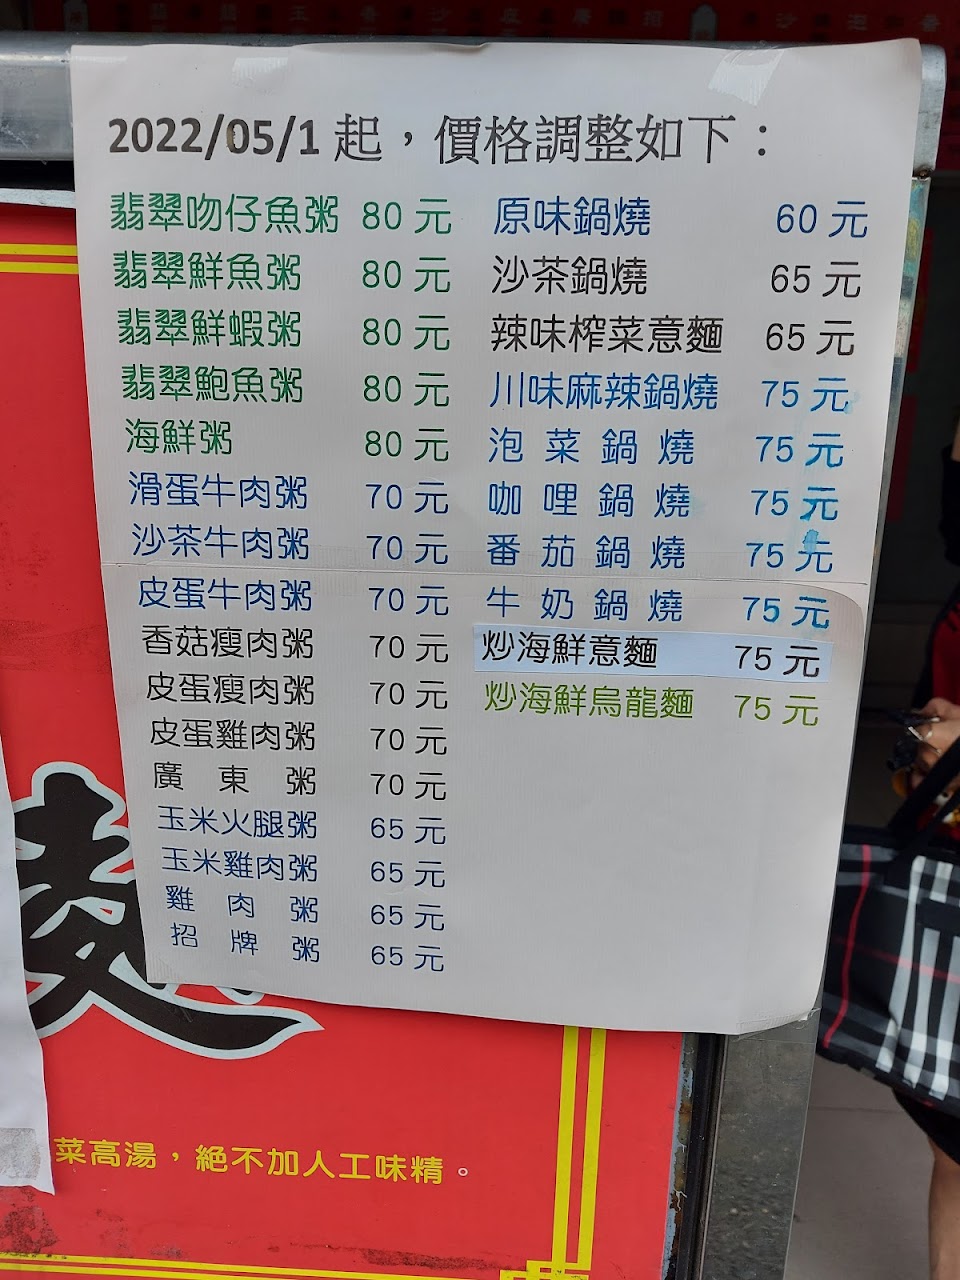 2022/05/1 起，價格調整如下：
翡翠吻仔魚粥 80 元
翡翠鮮魚粥 80 元
翡翠鮮蝦粥 80 元
翡翠鮑魚粥 80 元
海鮮粥 80 元
滑蛋牛肉粥 70 元
沙茶牛肉粥 70 元
皮蛋牛肉粥 70 元
香菇瘦肉粥 70 元
皮蛋瘦肉粥 70 元
皮蛋雞肉粥 70 元
廣 東 粥 70 元
玉米火腿粥 65 元
玉米雞肉粥 65 元
雞 肉 粥 65 元
招 牌 粥 65 元
原味鍋燒 60 元
沙茶鍋燒 65 元
辣味榨菜意麵 65 元
川味麻辣鍋燒 75 元
泡 菜 鍋 燒 75 元
咖 哩 鍋 燒 75 元
番 茄 鍋 燒 75 元
牛 奶 鍋 燒 75 元
炒海鮮意麵 75 元
炒海鮮烏龍麵 75 元
菜高湯，絕不加人工味精。